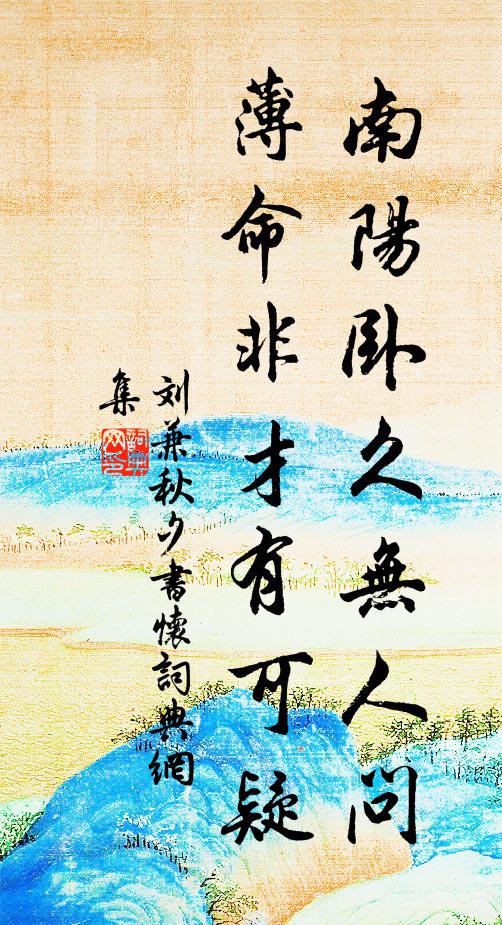 南陽臥久無人問
薄命非才有可疑
刘兼秋夕書懷詞典網
集